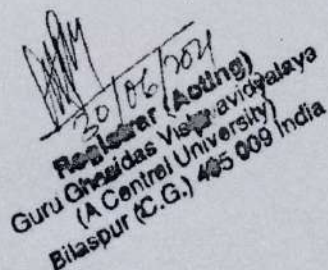 30/06/2021
Registrar (Acting)
Guru Ghasidas Vishwavidyalaya
(A Central University)
Bilaspur (C.G.) 495 009 India